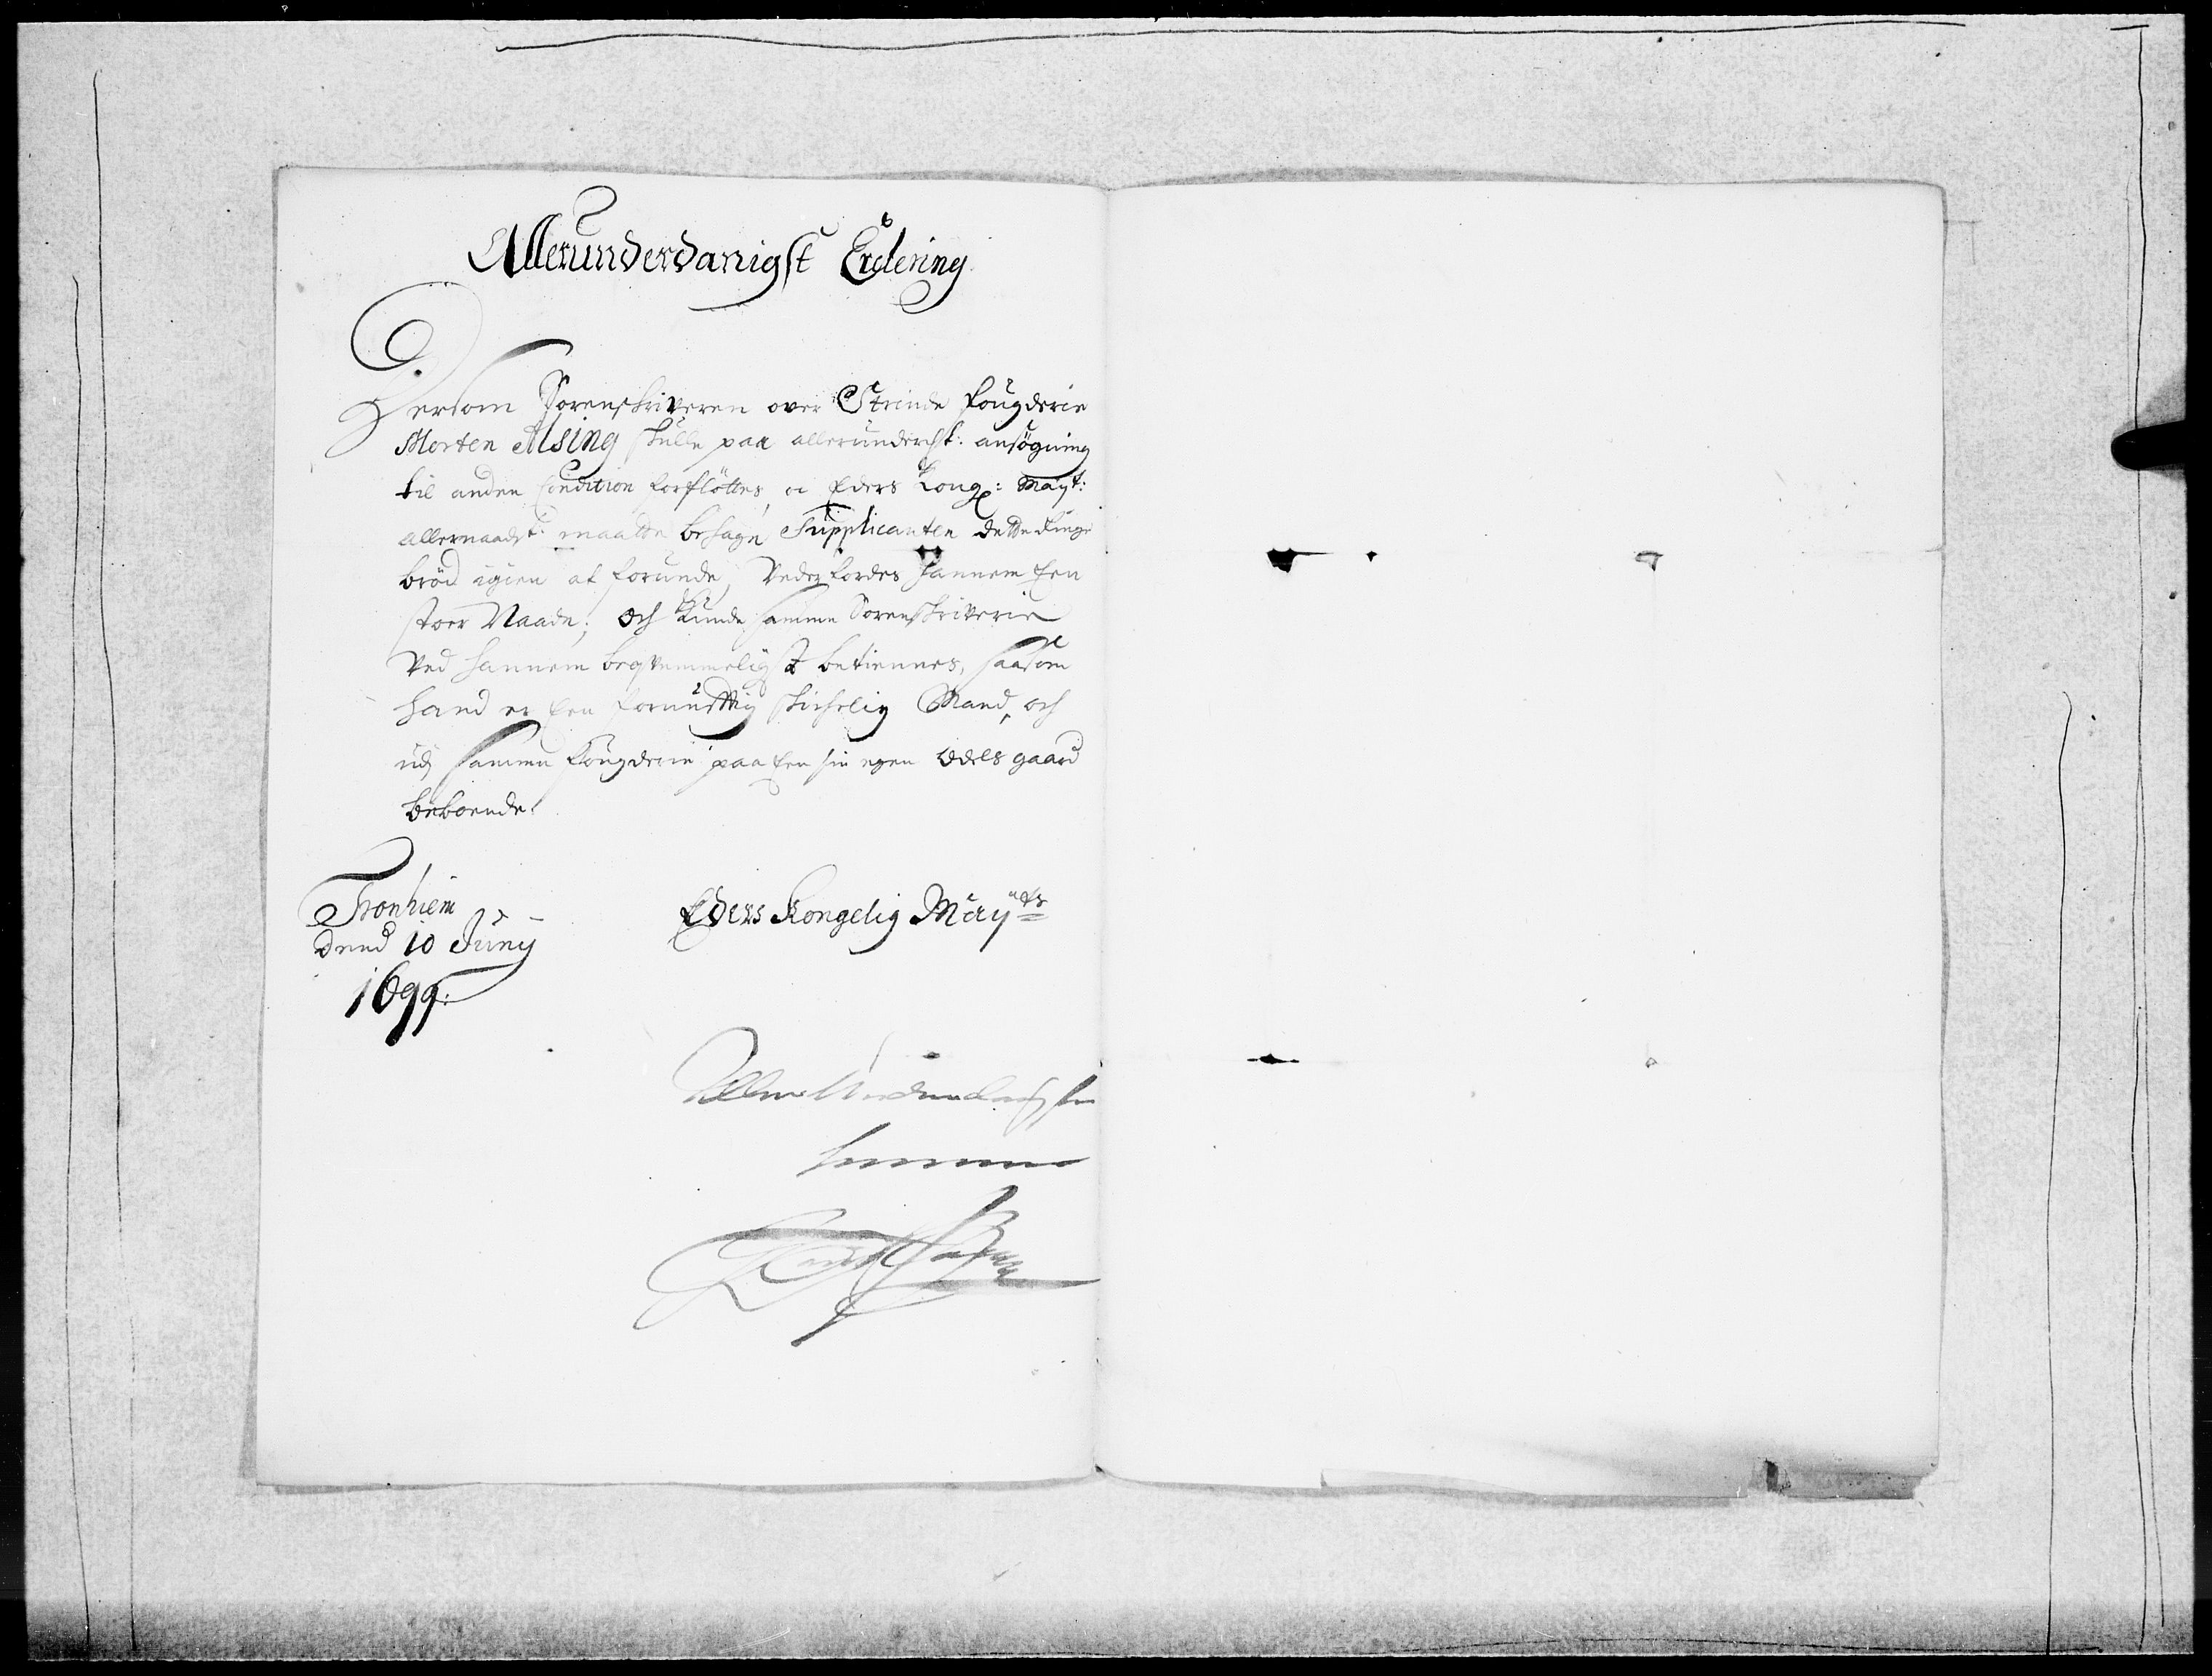 Allerunderdanigst Erclering
Dersom Sorenskriveren over Strinde fougderie
Morten Alsing skulle paa allerunderdst: ansögning
til anden Condition forflöttes, oc Eders Kong: Mayt:
allernaadst: maatte behage Supplicanten dette ringe
bröd igien at forunde, Vederfordes hannem Een
stoer Naade; och kunde samme Sorenskriverie
Ved hannem beqvemmeligst betiennes, saasom
hand er Een fornufftig skichelig Mand, och
udj samme fougderie paa Een sin egen Odels gaard
beboende.
Tronhiem
dend 10 Junij
1699:
Eders Kongelig Mayts